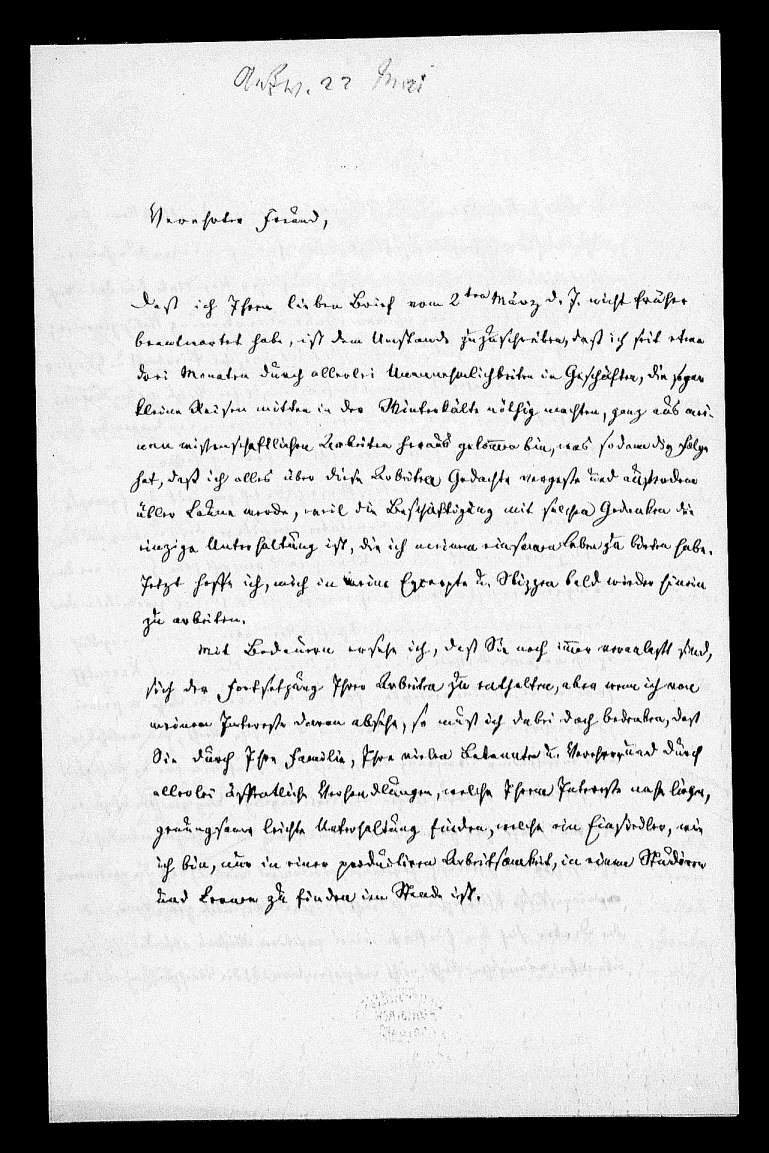 Antw. 22 Mai
Verehrter Freund,
Daß ich Ihren lieben Brief vom 2ten März d. J. nicht früher
beantwortet habe, ist dem Umstande zuzuschreiben, daß ich seit etwa
drei Monaten durch allerlei Unannehmlichkeiten in Geschäften, die sogar
kleine Reisen mitten in der Winterkälte nöthig machten, ganz aus mei-
nen wissenschaftlichen Arbeiten heraus gekommen bin, was sodann die Folge
hat, daß ich alles über diese Arbeiten Gedachte vergesse und außerdem
übler Laune werde, weil die Beschäftigung mit solchen Gedanken die
einzige Unterhaltung ist, die ich meinem einsamen Leben zu bieten habe.
Jetzt hoffe ich, mich in meine Excerpte u. Skizzen bald wieder hinein
zu arbeiten.
Mit Bedauern ersehe ich, daß Sie noch immer veranlaßt sind,
sich der Fortsetzung Ihrer Arbeiten zu enthalten, aber wenn ich von
meinem Interesse daran absehe, so muß ich dabei doch bedenken, daß
Sie durch Ihre Familie, Ihre vielen Bekannten u. Verehrer und durch
allerlei öffentliche Verhandlungen, welche Ihrem Interesse nahe liegen,
genugsam leichte Unterhaltung finden, welche ein Einsiedler, wie
ich bin, nur in einer productiven Arbeitsamkeit, in einem Studieren
und Lernen zu finden im Stande ist.